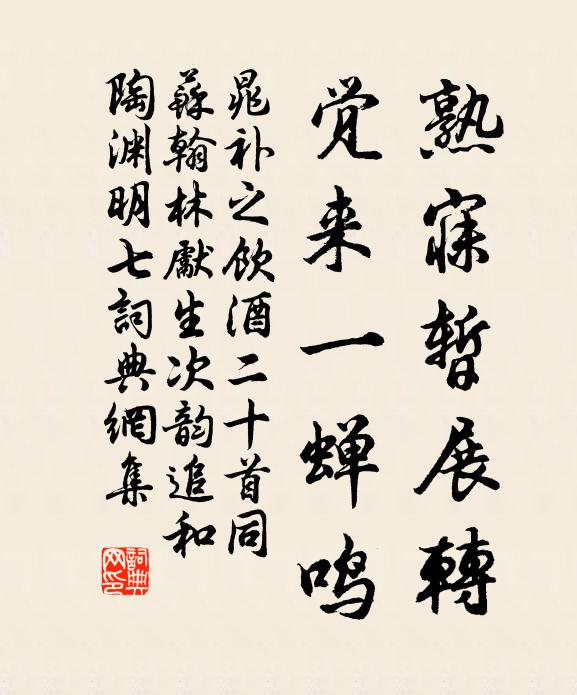 熟寐暫展轉
觉来一蝉鸣
晁补之饮酒二十首同
蘇翰林獻生次韵追和
陶渊明七詞典網集
詞典网印